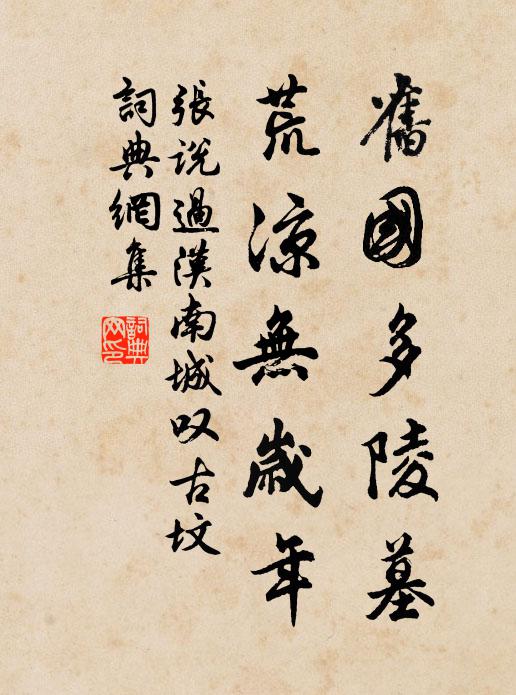 舊國多陵墓
荒凉無歲年
張説過漢南城叹古坟
詞典網集
詞典
网印